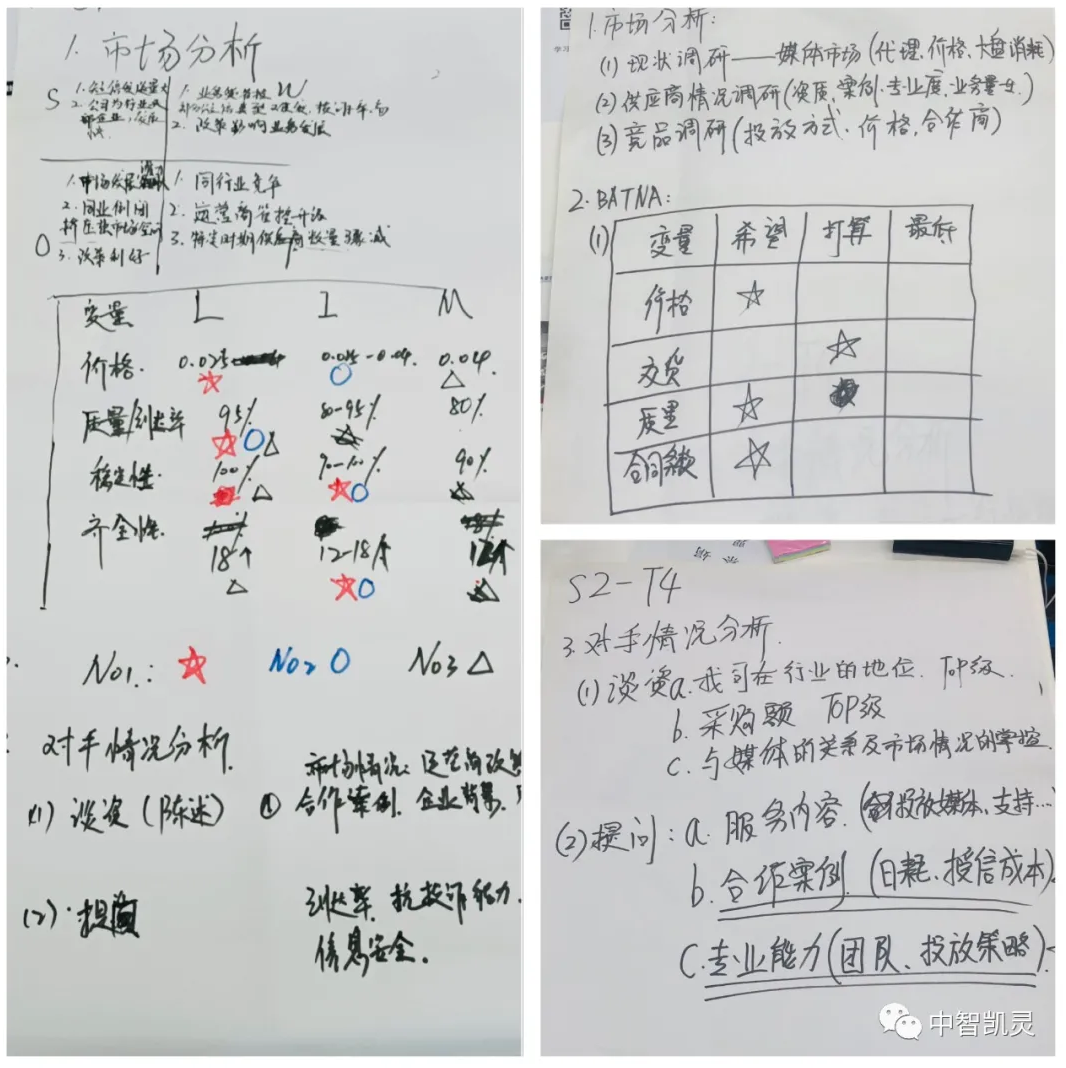 1. 市场分析
S
W
1. 业务
2. 公司为行业
2. 政策影响业务发展
1. 市场发展
1. 同行业竞争
2. 同业倒闭
2. 运营商管控升级
挤压 市场空间
3. 特定时期供应商数量骤减
O
3. 政策利好
变量 L I M
价格. 0.025 0.025-0.04. 0.04.
☆ ○ △
质量/到达率 95% 80-95% 80%
☆ ○ △
稳定性. 100% 90-100% 90%
△ ☆ ○
齐全性.
18个 12-18个 12个
△ ☆ ○
No1.: ☆ No2 ○ No3 △
对手情况分析.
市场情况:
(1) 谈资 (陈述) ① 合作案例. 企业背景.
(2). 提问
到达率. 抗投诉能力.
信息安全.
1. 市场分析:
(1) 现状调研——媒体市场 (代理、价格、大盘消耗)
(2) 供应商情况调研 (资质、案例、专业度、业务量
(3) 竞品调研 (投放方式、价格, 合作商)
2. BATNA:
(1) 变量 希望 打算 最低
价格 ☆
交货 ☆
质量 ☆
合同条款 ☆
S2-T4
3. 对手情况分析.
(1) 谈资 a. 我司在行业的地位. TOP级.
b. 采购额 TOP级
c. 与媒体的关系及市场情况的掌控.
(2) 提问: a. 服务内容. (投放媒体、支持...
b. 合作案例. (日耗、授信成本).
C. 专业能力 (团队、投放策略).
中智凯灵